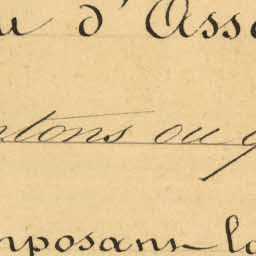 u d'Asse
ntons ou q
mposant la